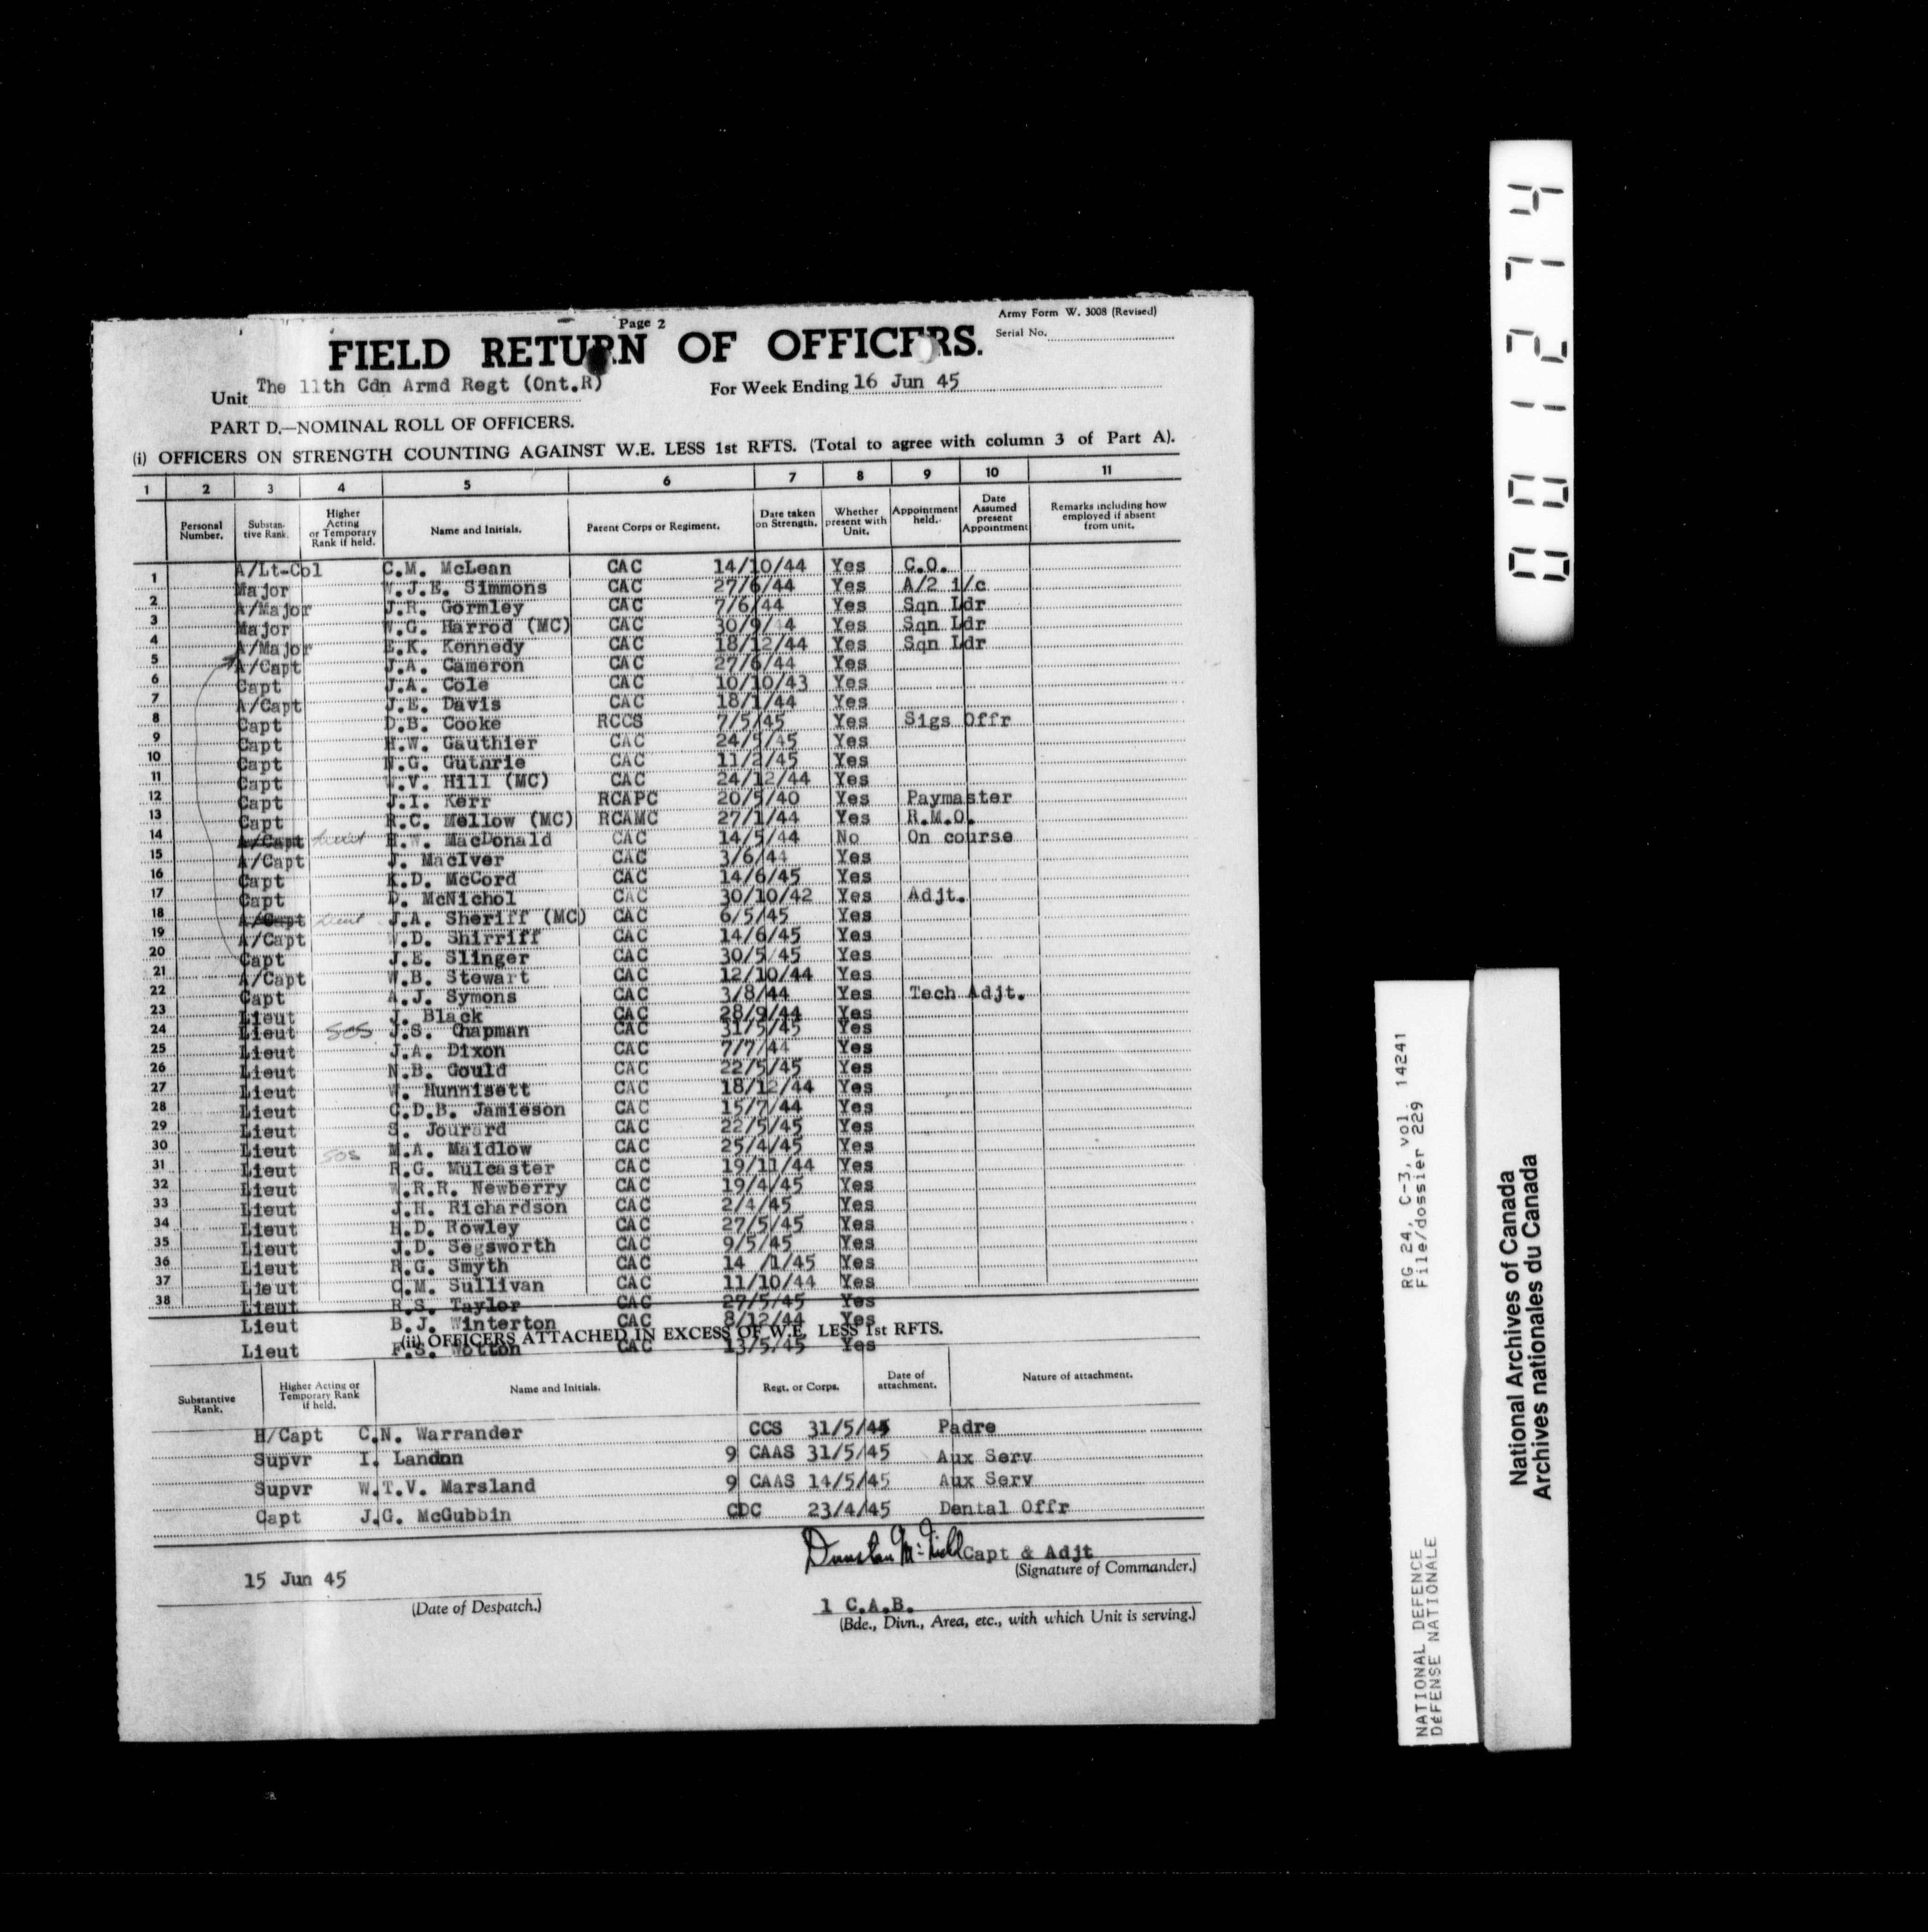 Page 2
Army Form W. 3008 (Revised)
FIELD RETURN OF OFFICERS.
Serial No.
Unit The 11th Cdn Armd Regt (Ont.R) For Week Ending 16 Jun 45
PART D.—NOMINAL ROLL OF OFFICERS.
(i) OFFICERS ON STRENGTH COUNTING AGAINST W.E. LESS 1st RFTS. (Total to agree with column 3 of Part A).
1 2 3 4 5 6 7 8 9 10 11
Personal Number. Substantive Rank. Higher Acting or Temporary Rank if held. Name and Initials. Parent Corps or Regiment. Date taken on Strength. Whether present with Unit. Appointment held. Date Assumed present Appointment Remarks including how employed if absent from unit.
1 A/Lt-Col C.M. McLean CAC 14/10/44 Yes C.O.
2 Major W.J.E. Simmons CAC 27/6/44 Yes A/2 i/c
3 A/Major J.R. Gormley CAC 7/6/44 Yes Sqn Ldr
4 Major W.G. Harrod (MC) CAC 30/9/44 Yes Sqn Ldr
5 A/Major E.K. Kennedy CAC 18/12/44 Yes Sqn Ldr
6 A/Capt J.A. Cameron CAC 27/6/44 Yes
7 Capt J.A. Cole CAC 10/10/43 Yes
8 A/Capt J.E. Davis CAC 18/1/44 Yes
9 Capt D.B. Cooke RCCS 7/5/45 Yes Sigs Offr
10 Capt H.W. Gauthier CAC 24/5/45 Yes
11 Capt N.G. Guthrie CAC 11/2/45 Yes
12 Capt W.V. Hill (MC) CAC 24/12/44 Yes
13 Capt J.I. Kerr RCAPC 20/5/40 Yes Paymaster
14 Capt R.C. Mellow (MC) RCAMC 27/1/44 Yes R.M.O.
15 A/Capt Lieut H.W. MacDonald CAC 14/5/44 No On course
16 A/Capt J. MacIver CAC 3/6/44 Yes
17 Capt K.D. McCord CAC 14/6/45 Yes
18 Capt D. McNichol CAC 30/10/42 Yes Adjt.
19 A/Capt Lieut J.A. Sheriff (MC) CAC 6/5/45 Yes
20 A/Capt W.D. Shirriff CAC 14/6/45 Yes
21 Capt J.E. Slinger CAC 30/5/45 Yes
22 A/Capt W.B. Stewart CAC 12/10/44 Yes
23 Capt A.J. Symons CAC 3/8/44 Yes Tech Adjt.
24 Lieut J. Black CAC 28/9/44 Yes
Lieut SOS J.S. Chapman CAC 31/5/45 Yes
25 Lieut J.A. Dixon CAC 7/7/44 Yes
26 Lieut N.B. Gould CAC 22/5/45 Yes
27 Lieut W. Hunnisett CAC 18/12/44 Yes
28 Lieut C.D.B. Jamieson CAC 15/7/44 Yes
29 Lieut S. Jourard CAC 22/5/45 Yes
30 Lieut SOS M.A. Maidlow CAC 25/4/45 Yes
31 Lieut R.G. Mulcaster CAC 19/11/44 Yes
32 Lieut W.R.R. Newberry CAC 19/4/45 Yes
33 Lieut J.H. Richardson CAC 2/4/45 Yes
34 Lieut H.D. Rowley CAC 27/5/45 Yes
35 Lieut J.D. Segsworth CAC 9/5/45 Yes
36 Lieut R.G. Smyth CAC 14 /1/45 Yes
37 Lieut C.M. Sullivan CAC 11/10/44 Yes
38 Lieut R.S. Taylor CAC 27/5/45 Yes
Lieut B.J. Winterton CAC 8/12/44 Yes
(ii) OFFICERS ATTACHED IN EXCESS OF W.E. LESS 1st RFTS.
Lieut F.S. Wotton CAC 13/5/45 Yes
Substantive Rank. Higher Acting or Temporary Rank if held. Name and Initials. Regt. or Corps. Date of attachment. Nature of attachment.
H/Capt C.N. Warrander CCS 31/5/45 Padre
Supvr I. Landon 9 CAAS 31/5/45 Aux Serv
Supvr W.T.V. Marsland 9 CAAS 14/5/45 Aux Serv
Capt J.G. McGubbin CDC 23/4/45 Dental Offr
Capt & Adjt
(Signature of Commander.)
15 Jun 45
(Date of Despatch.)
1 C.A.B.
(Bde., Divn., Area, etc., with which Unit is serving.)
001274
RG 24, C-3, vol. 14241
File/dossier 229
NATIONAL DEFENCE
DÉFENSE NATIONALE
National Archives of Canada
Archives nationales du Canada